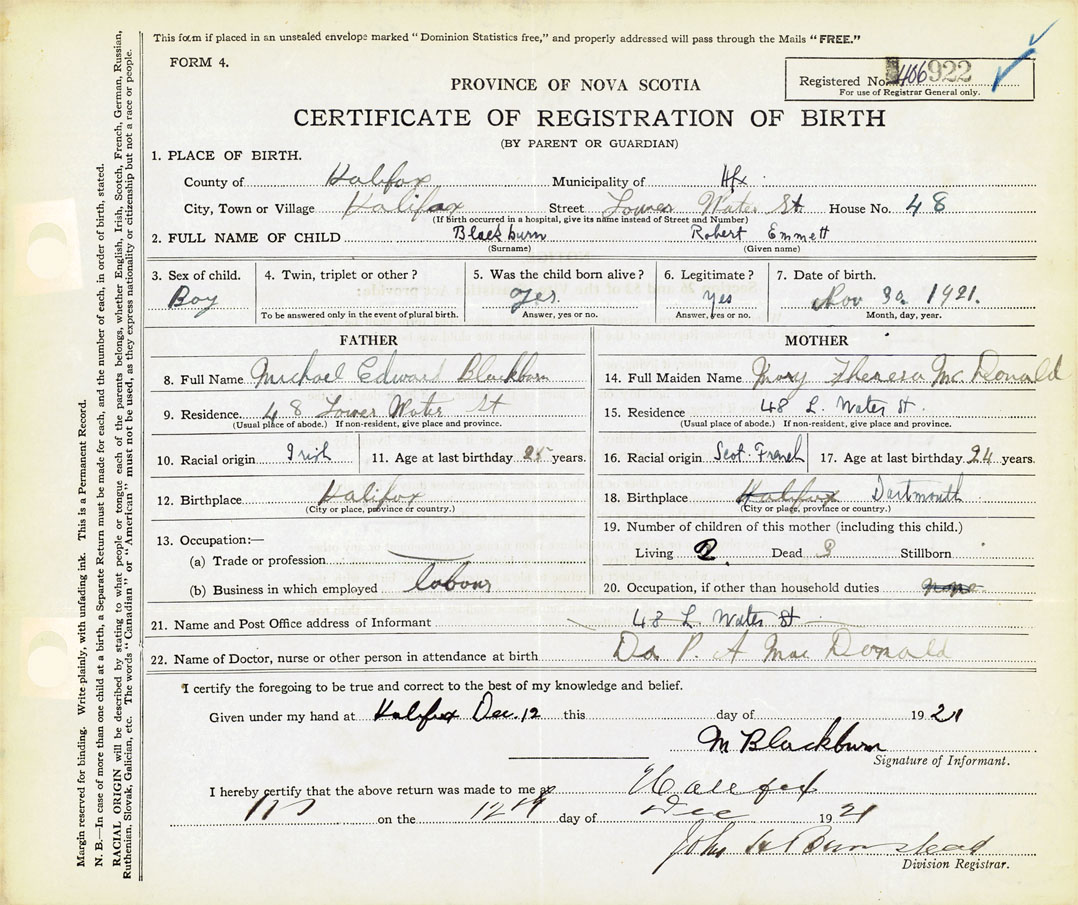 This form if placed in an unsealed envelope marked "Dominion Statistics free," and properly addressed will pass through the Mails "FREE."
FORM 4.
Registered No. 406922
For use of Registrar General only.
PROVINCE OF NOVA SCOTIA
CERTIFICATE OF REGISTRATION OF BIRTH
(BY PARENT OR GUARDIAN)
1. PLACE OF BIRTH.
County of Halifax Municipality of Hfx
City, Town or Village Halifax Street Lower Water St House No. 48
(If birth occurred in a hospital, give its name instead of Street and Number)
2. FULL NAME OF CHILD Blackburn Robert Emmett
(Surname) (Given name)
3. Sex of child. 4. Twin, triplet or other? 5. Was the child born alive? 6. Legitimate? 7. Date of birth.
Boy yes. yes Nov 30 1921.
To be answered only in the event of plural birth. Answer, yes or no. Answer, yes or no. Month, day, year.
FATHER
8. Full Name Michael Edward Blackburn
9. Residence 48 Lower Water St
(Usual place of abode.) If non-resident, give place and province.
10. Racial origin Irish 11. Age at last birthday 25 years.
12. Birthplace Halifax
(City or place, province or country.)
13. Occupation:—
(a) Trade or profession
(b) Business in which employed labour
MOTHER
14. Full Maiden Name Mary Theresa McDonald
15. Residence 48 L. Water St.
(Usual place of abode.) If non-resident, give place and province.
16. Racial origin Scot. French 17. Age at last birthday 24 years.
18. Birthplace Halifax Dartmouth
(City or place, province or country.)
19. Number of children of this mother (including this child.)
Living 2. Dead 3 Stillborn
20. Occupation, if other than household duties none
21. Name and Post Office address of Informant 48 L Water St
22. Name of Doctor, nurse or other person in attendance at birth Dr. P. A Mac Donald
I certify the foregoing to be true and correct to the best of my knowledge and belief.
Given under my hand at Halifax Dec. 12 this day of 1921
M Blackburn
Signature of Informant.
I hereby certify that the above return was made to me at Halifax
on the 12th day of Dec 1921
John H Bumstead
Division Registrar.
Margin reserved for binding. Write plainly, with unfading ink. This is a Permanent Record.
N. B.—In case of more than one child at a birth, a Separate Return must be made for each, and the number of each, in order of birth, stated.
RACIAL ORIGIN will be described by stating to what people or tongue each of the parents belongs, whether English, Irish, Scotch, French, German, Russian,
Ruthenian, Slovak, Galician, etc. The words "Canadian" or "American" must not be used, as they express nationality or citizenship but not a race or people.